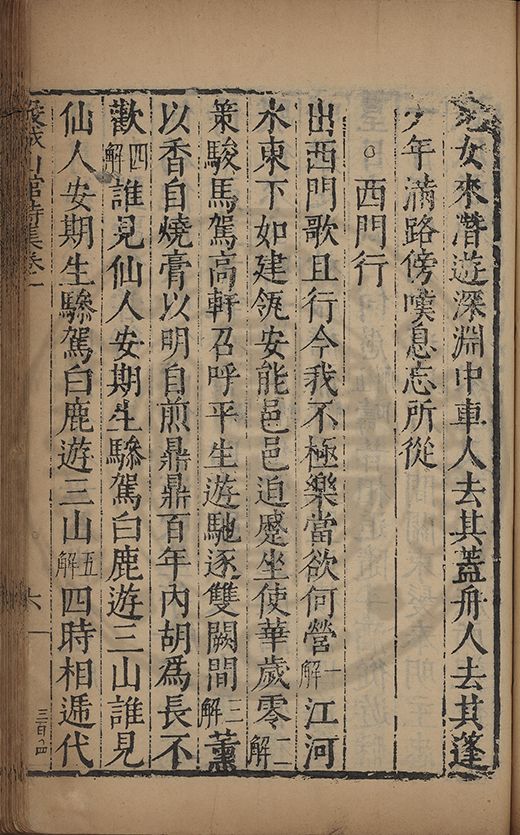 女來潛遊深淵中車人去其蓋舟人去其蓬
少年滿路傍嘆息忘所從
○西門行
出西門歌且行今我不極樂當欲何營一解江河
水東下如建瓴安能邑邑迫蹙坐使華歲零二解
策駿馬駕高軒召呼平生遊馳逐雙闕間三解薰
以香自燒膏以明自煎鼎鼎百年內胡為長不
歡四解誰見仙人安期生驂駕白鹿遊三山誰見
仙人安期生驂駕白鹿遊三山五解四時相遞代
山館詩集卷一
六
三百四